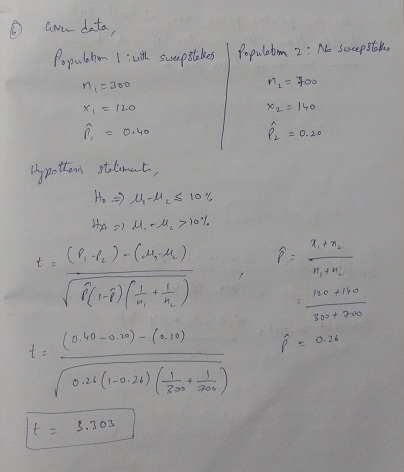 6 Given data,
Population 1 : with sweepstakes | Population 2 : No sweepstakes
n₁ = 300 n₂ = 700
x₁ = 120 x₂ = 140
p̂₁ = 0.40 p̂₂ = 0.20
Hypothesis statements,
H₀ => μ₁-μ₂ ≤ 10%
Hₐ => μ₁-μ₂ > 10%
t = (p₁-p₂) - (μ₁-μ₂) / √(p̂(1-p̂)(1/n₁ + 1/n₂)) , p̂ = x₁+x₂ / n₁+n₂
= 120+140 / 300+700
t = (0.40 - 0.20) - (0.10) / √(0.26(1-0.26)(1/300 + 1/700)) p̂ = 0.26
t = 3.303